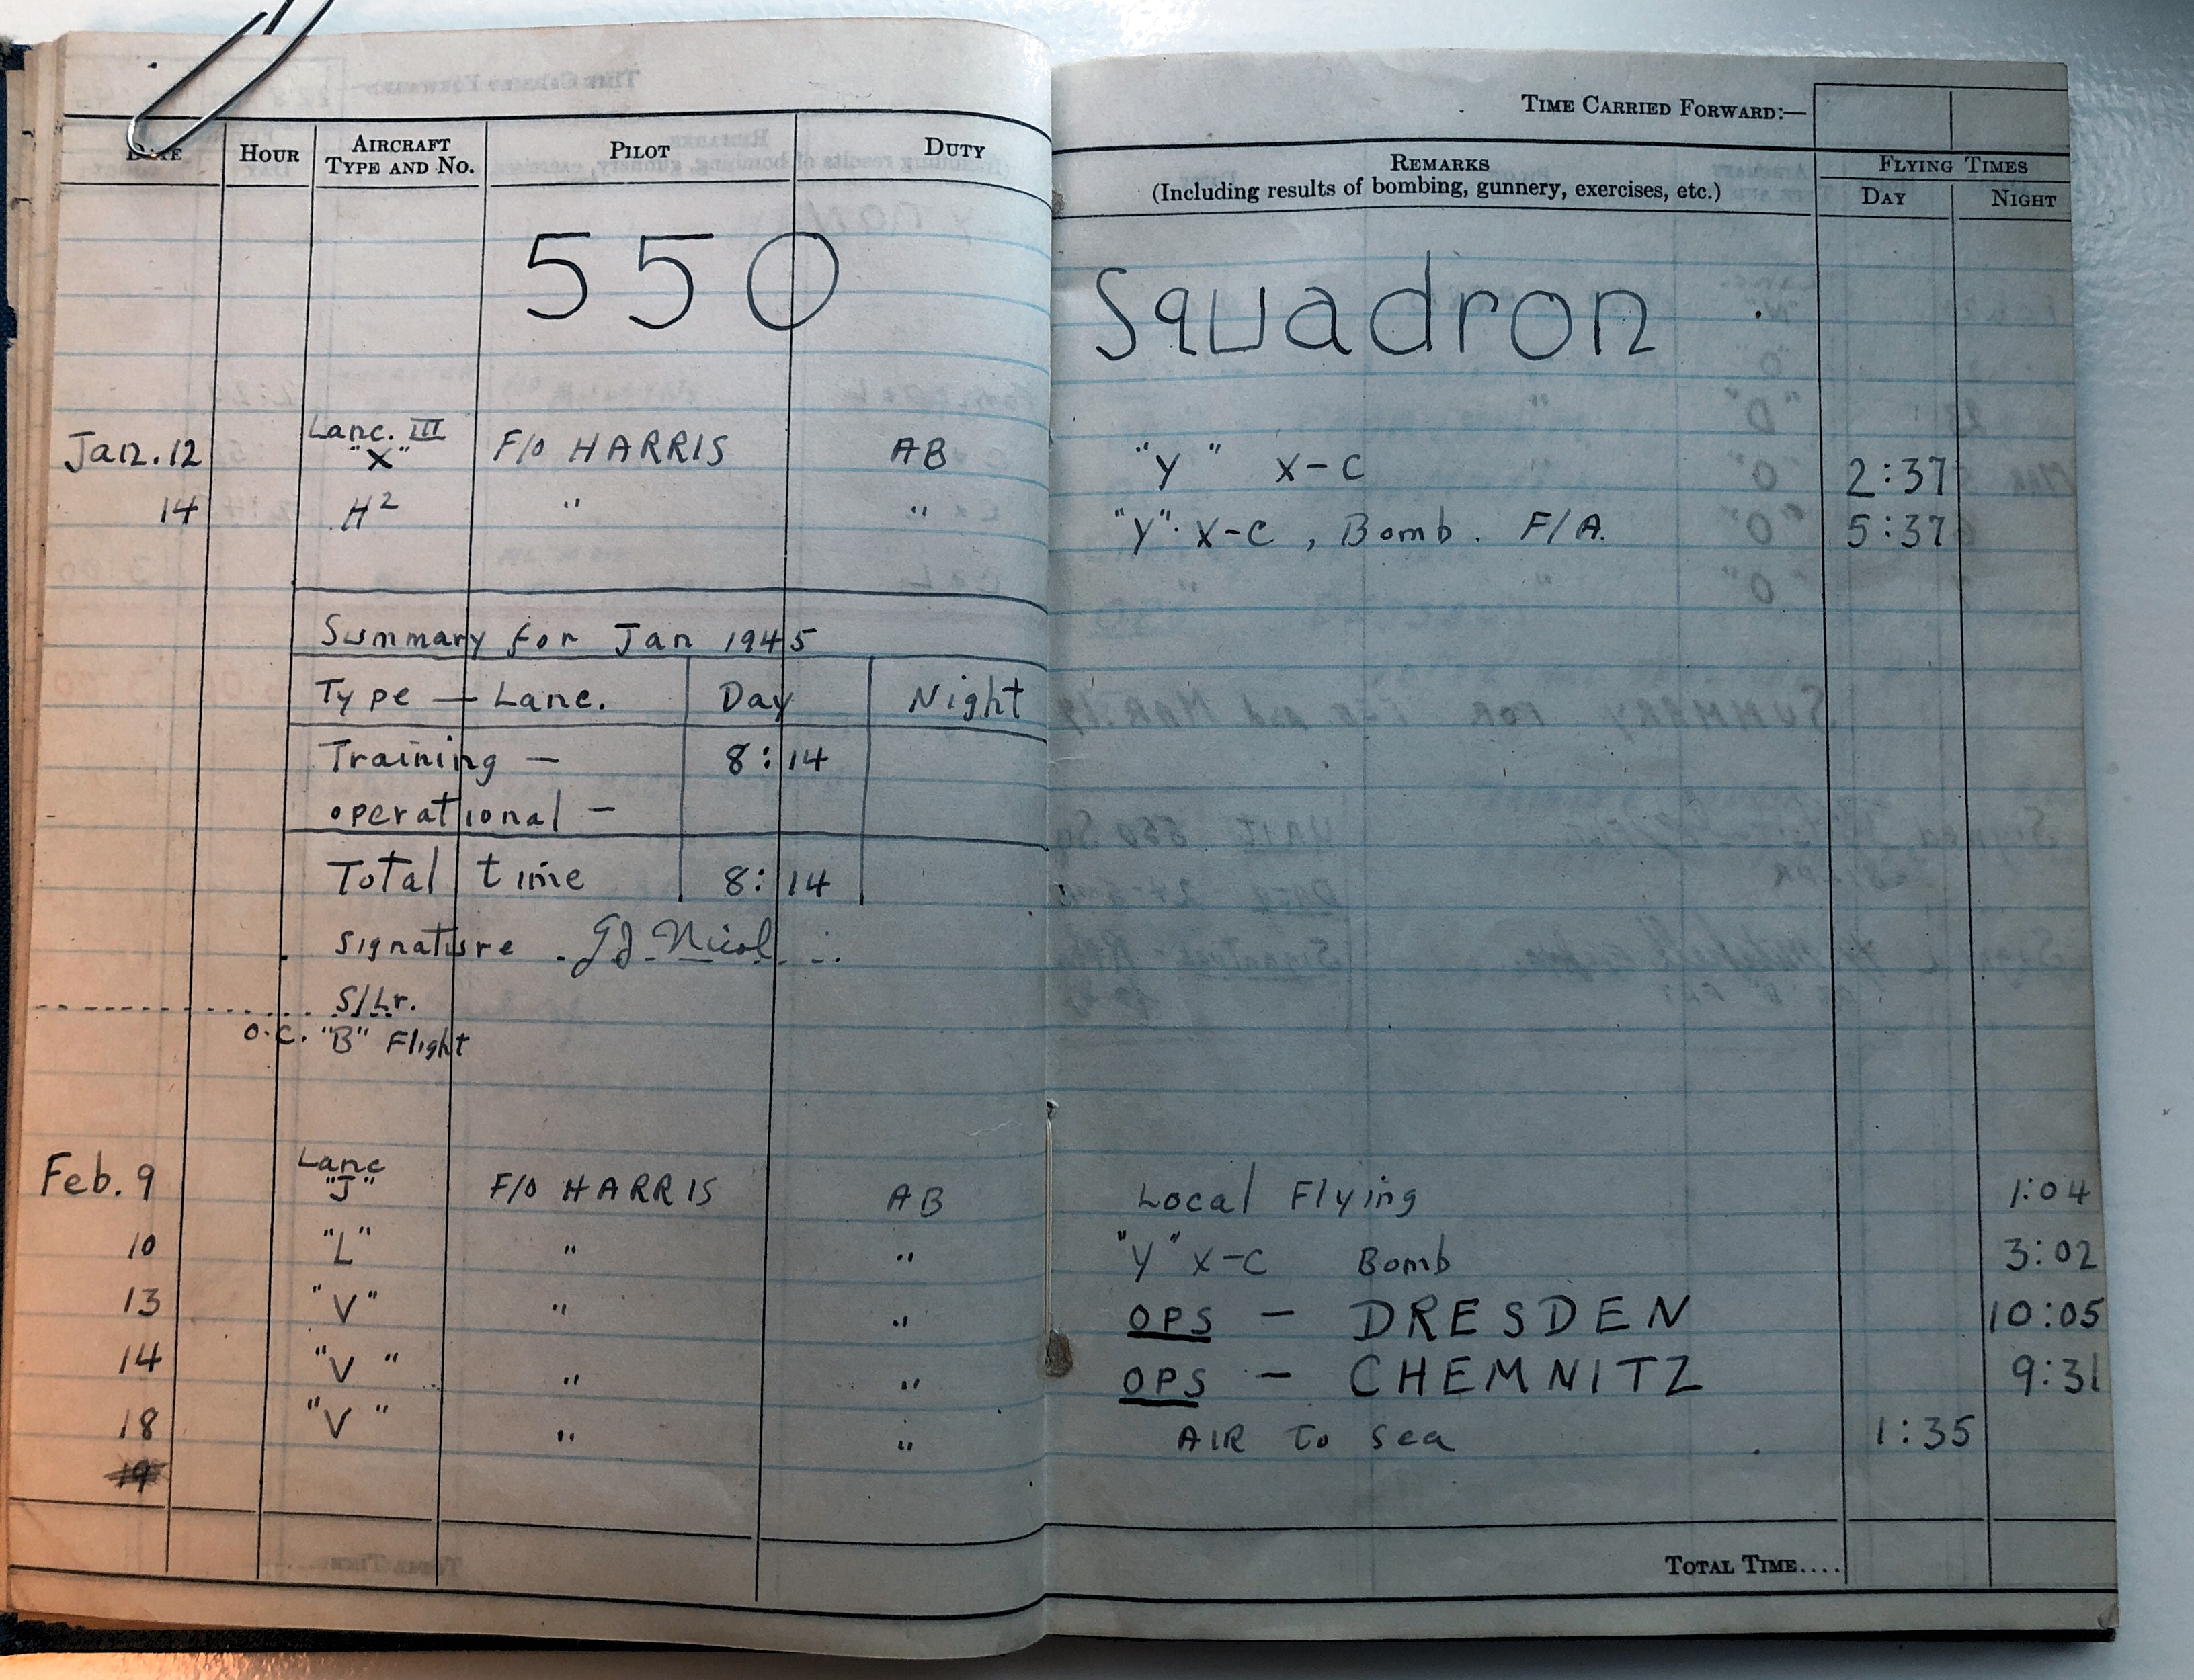 TIME CARRIED FORWARD:—
DATE HOUR AIRCRAFT TYPE AND No. PILOT DUTY REMARKS (Including results of bombing, gunnery, exercises, etc.) FLYING TIMES DAY NIGHT
550 Squadron
Jan. 12 Lanc. III "X" F/O HARRIS AB "Y" X-C 2:37
14 H2 " " "Y" X-C, Bomb. F/A. 5:37
Summary for Jan 1945
Type — Lanc. Day Night
Training — 8:14
operational —
Total time 8:14
signature GJ Nicol
S/Lr.
O.C. "B" Flight
Feb. 9 Lanc "J" F/O HARRIS AB Local Flying 1:04
10 "L" " " "Y" X-C Bomb 3:02
13 "V" " " OPS — DRESDEN 10:05
14 "V" " " OPS — CHEMNITZ 9:31
18 "V" " " AIR to sea 1:35
19
TOTAL TIME....